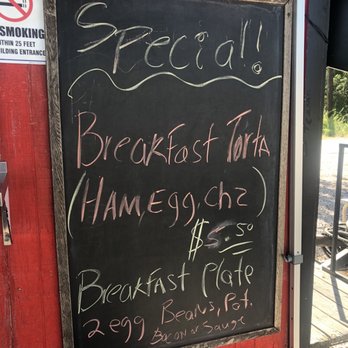 SMOKING
WITHIN 25 FEET
BUILDING ENTRANCE
Special!!
Breakfast Torta
(Ham, Egg, chz)
$5.50
Breakfast Plate
2 egg Beans, Pot.
Bacon or Sauge